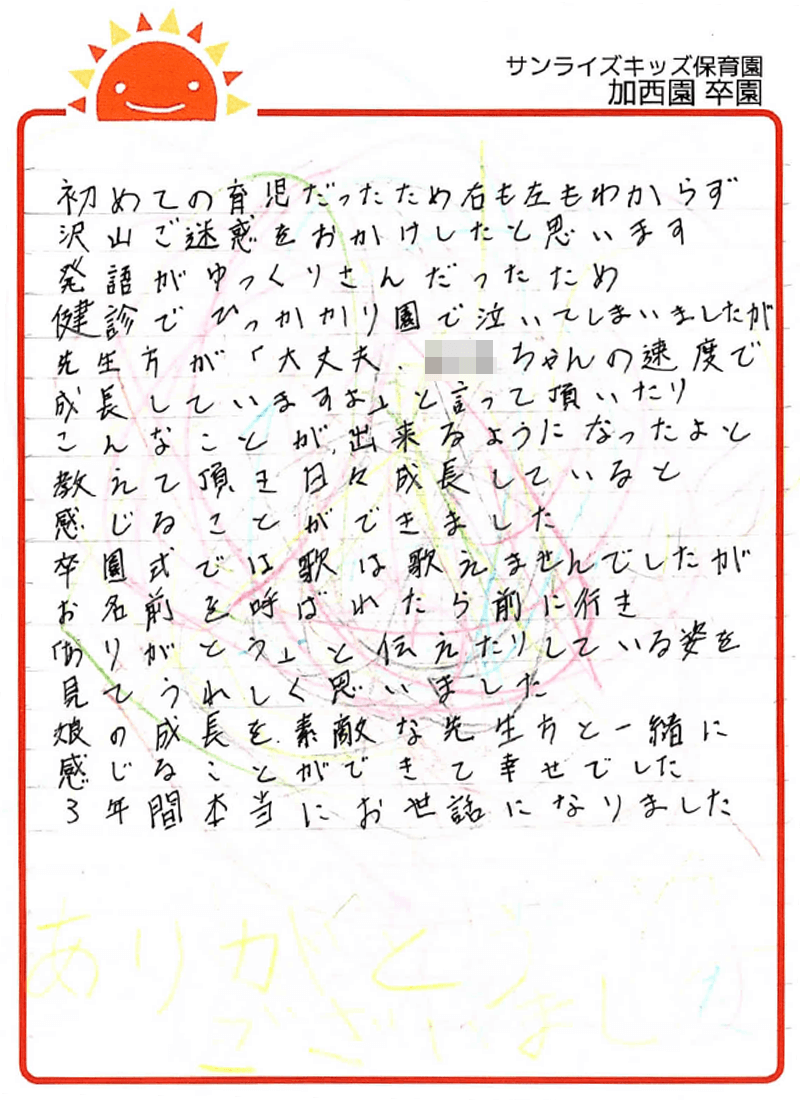 サンライズキッズ保育園
加西園 卒園
初めての育児だったため右も左もわからず
沢山ご迷惑をおかけしたと思います
発語がゆっくりさんだったため
健診でひっかかり園で泣いてしまいましたが
先生方が「大丈夫、ちゃんの速度で
成長していますよ」と言って頂いたり
こんなことが出来るようになったよと
教えて頂き日々成長していると
感じることができました
卒園式では歌は歌えませんでしたが
お名前を呼ばれたら前に行き
「ありがとう」と伝えたりしている姿を
見てうれしく思いました
娘の成長を素敵な先生方と一緒に
感じることができて幸せでした
3年間本当にお世話になりました
ありがとう
ございまし